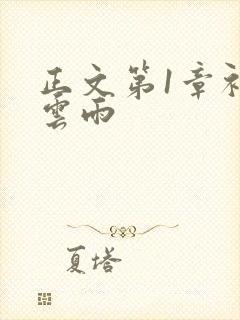 正文第1章初
雲雨
夏塔